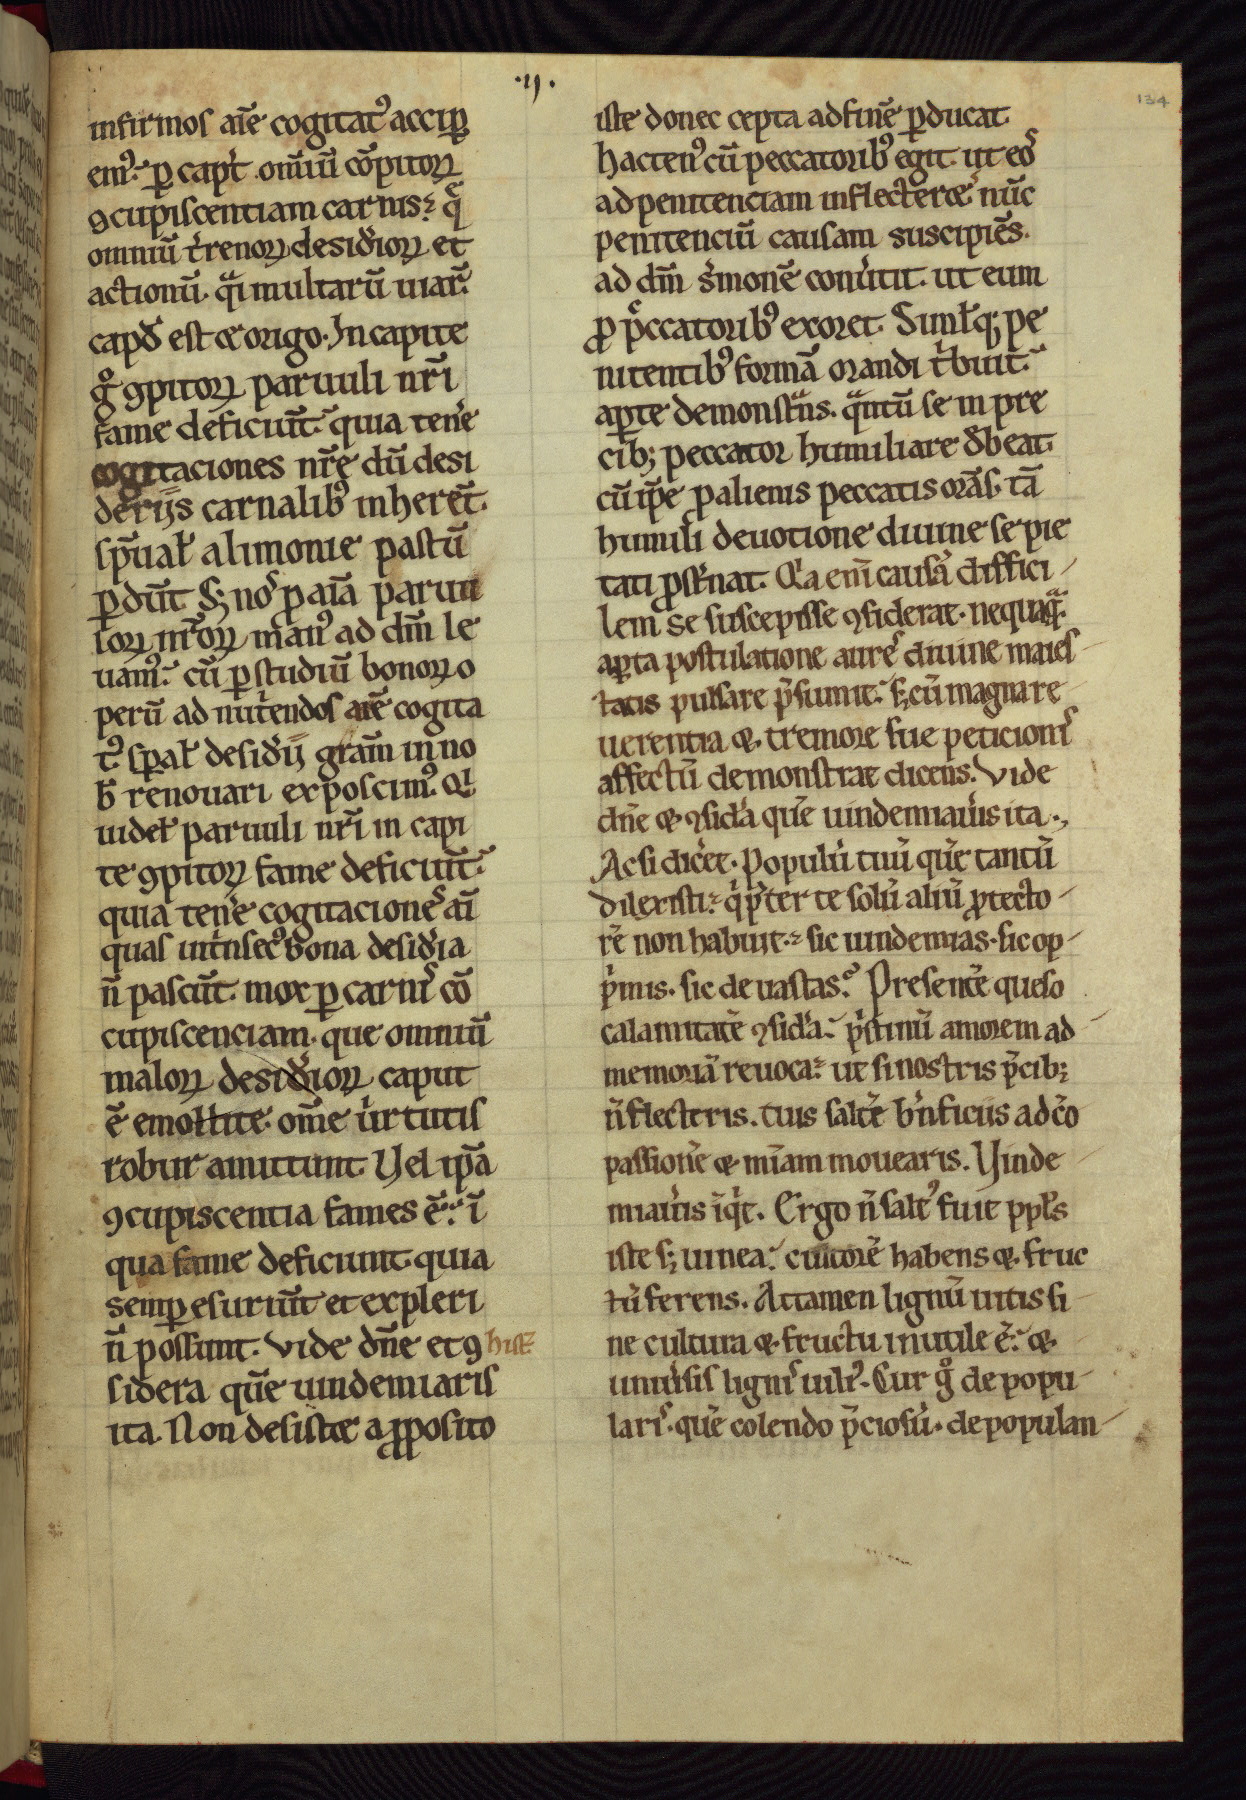 ·ij·
134
infirmos aīe cogitat᷒ accip̲
em᷒. ꝑ capt̕ omniū cōpitoꝝ
ꝯcupiscentiam carnis. q̄
omniū t̕renoꝝ desid̕ioꝝ et
actionū. qͣi multarū uiar̄.
capđ est ⁊ origo. In capite
gͦ ꝯpitoꝝ paruuli nr̄i
fame deficiūt. quia tene
cogitaciones nr̄e dū desi
derijs carnalib᷒ inherēt.
sp̄ualʼ alimonie pastū
ꝑdūt S; nos ꝑ aīa paruu
loꝝ nr̄oꝝ man᷒ ad dm̄ le
uam᷒. cū ꝑ studiū bonoꝝ o
perū ad nut̕endos aīe cogita
t᷒ sp̄alʼ desid̕ij grām in no
b̄ renouari exposcim᷒. Ul
uidelʼ paruuli nr̄i in capi
te ꝯpitoꝝ fame deficiūt.
quia tene cogitaciones aī
quas int̕nsec᷒ bona desid̕ia
n̄ pascūt. mox ꝑ carnis cō
cupiscenciam. que omniū
maloꝝ desid̕ioꝝ caput
ē emollite. om̄e uirtutis
robur amittunt. Vel ip̄a
ꝯcupiscentia fames ē. ī
qua fame deficiunt. quia
semꝑ esuriūt et expleri
n̄ possunt. Vide dn̄e et ꝯ hist̄
sidera quē uindemiaris
ita. Non desistit a ꝓposito
iste donec cepta ad finē ꝑducat
hacten᷒ cū peccatorib᷒ egit ut eos
ad penitenciam inflecteret nūc
penitenciū causam suscipiēs.
ad dm̄ s̕monē conu̕tit. ut eum
ꝓ p̄ccatorib᷒ exoret. Simlʼq; pe
nitentib᷒ formā orandi t̕buit.
aꝑte demonstͣns. qͣntū se in pre
cib; peccator humiliare d̕beat
cū ip̄e ꝓ alienis peccatis orās. tā
humili deuotione diuine se pie
tati ꝓst̕nat. Qͣ a enī causā diffici
lem se suscepisse ꝯsiderat. nequaqͣ.
aꝑta postulatione aures diuine maies
tatis pulsare p̄sumit. s; cū magna re
uerentia ⁊ tremore sue peticionis
affectū demonstrat dicens. Vide
dn̄e ⁊ ꝯsid̕a quē uindemiau̕is ita.
Ac si dic̕et. Populū tuū quē tantū
dilexisti. q̕ p̄ter te solū aliū ꝓtecto
rē non habuit. sic uindemias. sic op
p̕mis. sic deuastas. Presentē queso
calamitatē ꝯsid̕a. p̕stinū amorem ad
memoriā reuoca. ut si nostris p̄cib;
n̄ flecteris. tuis saltē b̄nficiis ad cō
passionē ⁊ mīam mouearis. Vinde
miau̕is īq̕t. Ergo n̄ salt᷒ fuit ppl̄s
iste s; uinea. cultorē habens ⁊ fruc
tū ferens. Attamen lignū uitis si
ne cultura ⁊ fructu inutile ē. ⁊
uniu̕sis lignis uili᷒. Cur gͦ depopu
laris. quē colendo p̄ciosū. depopulan